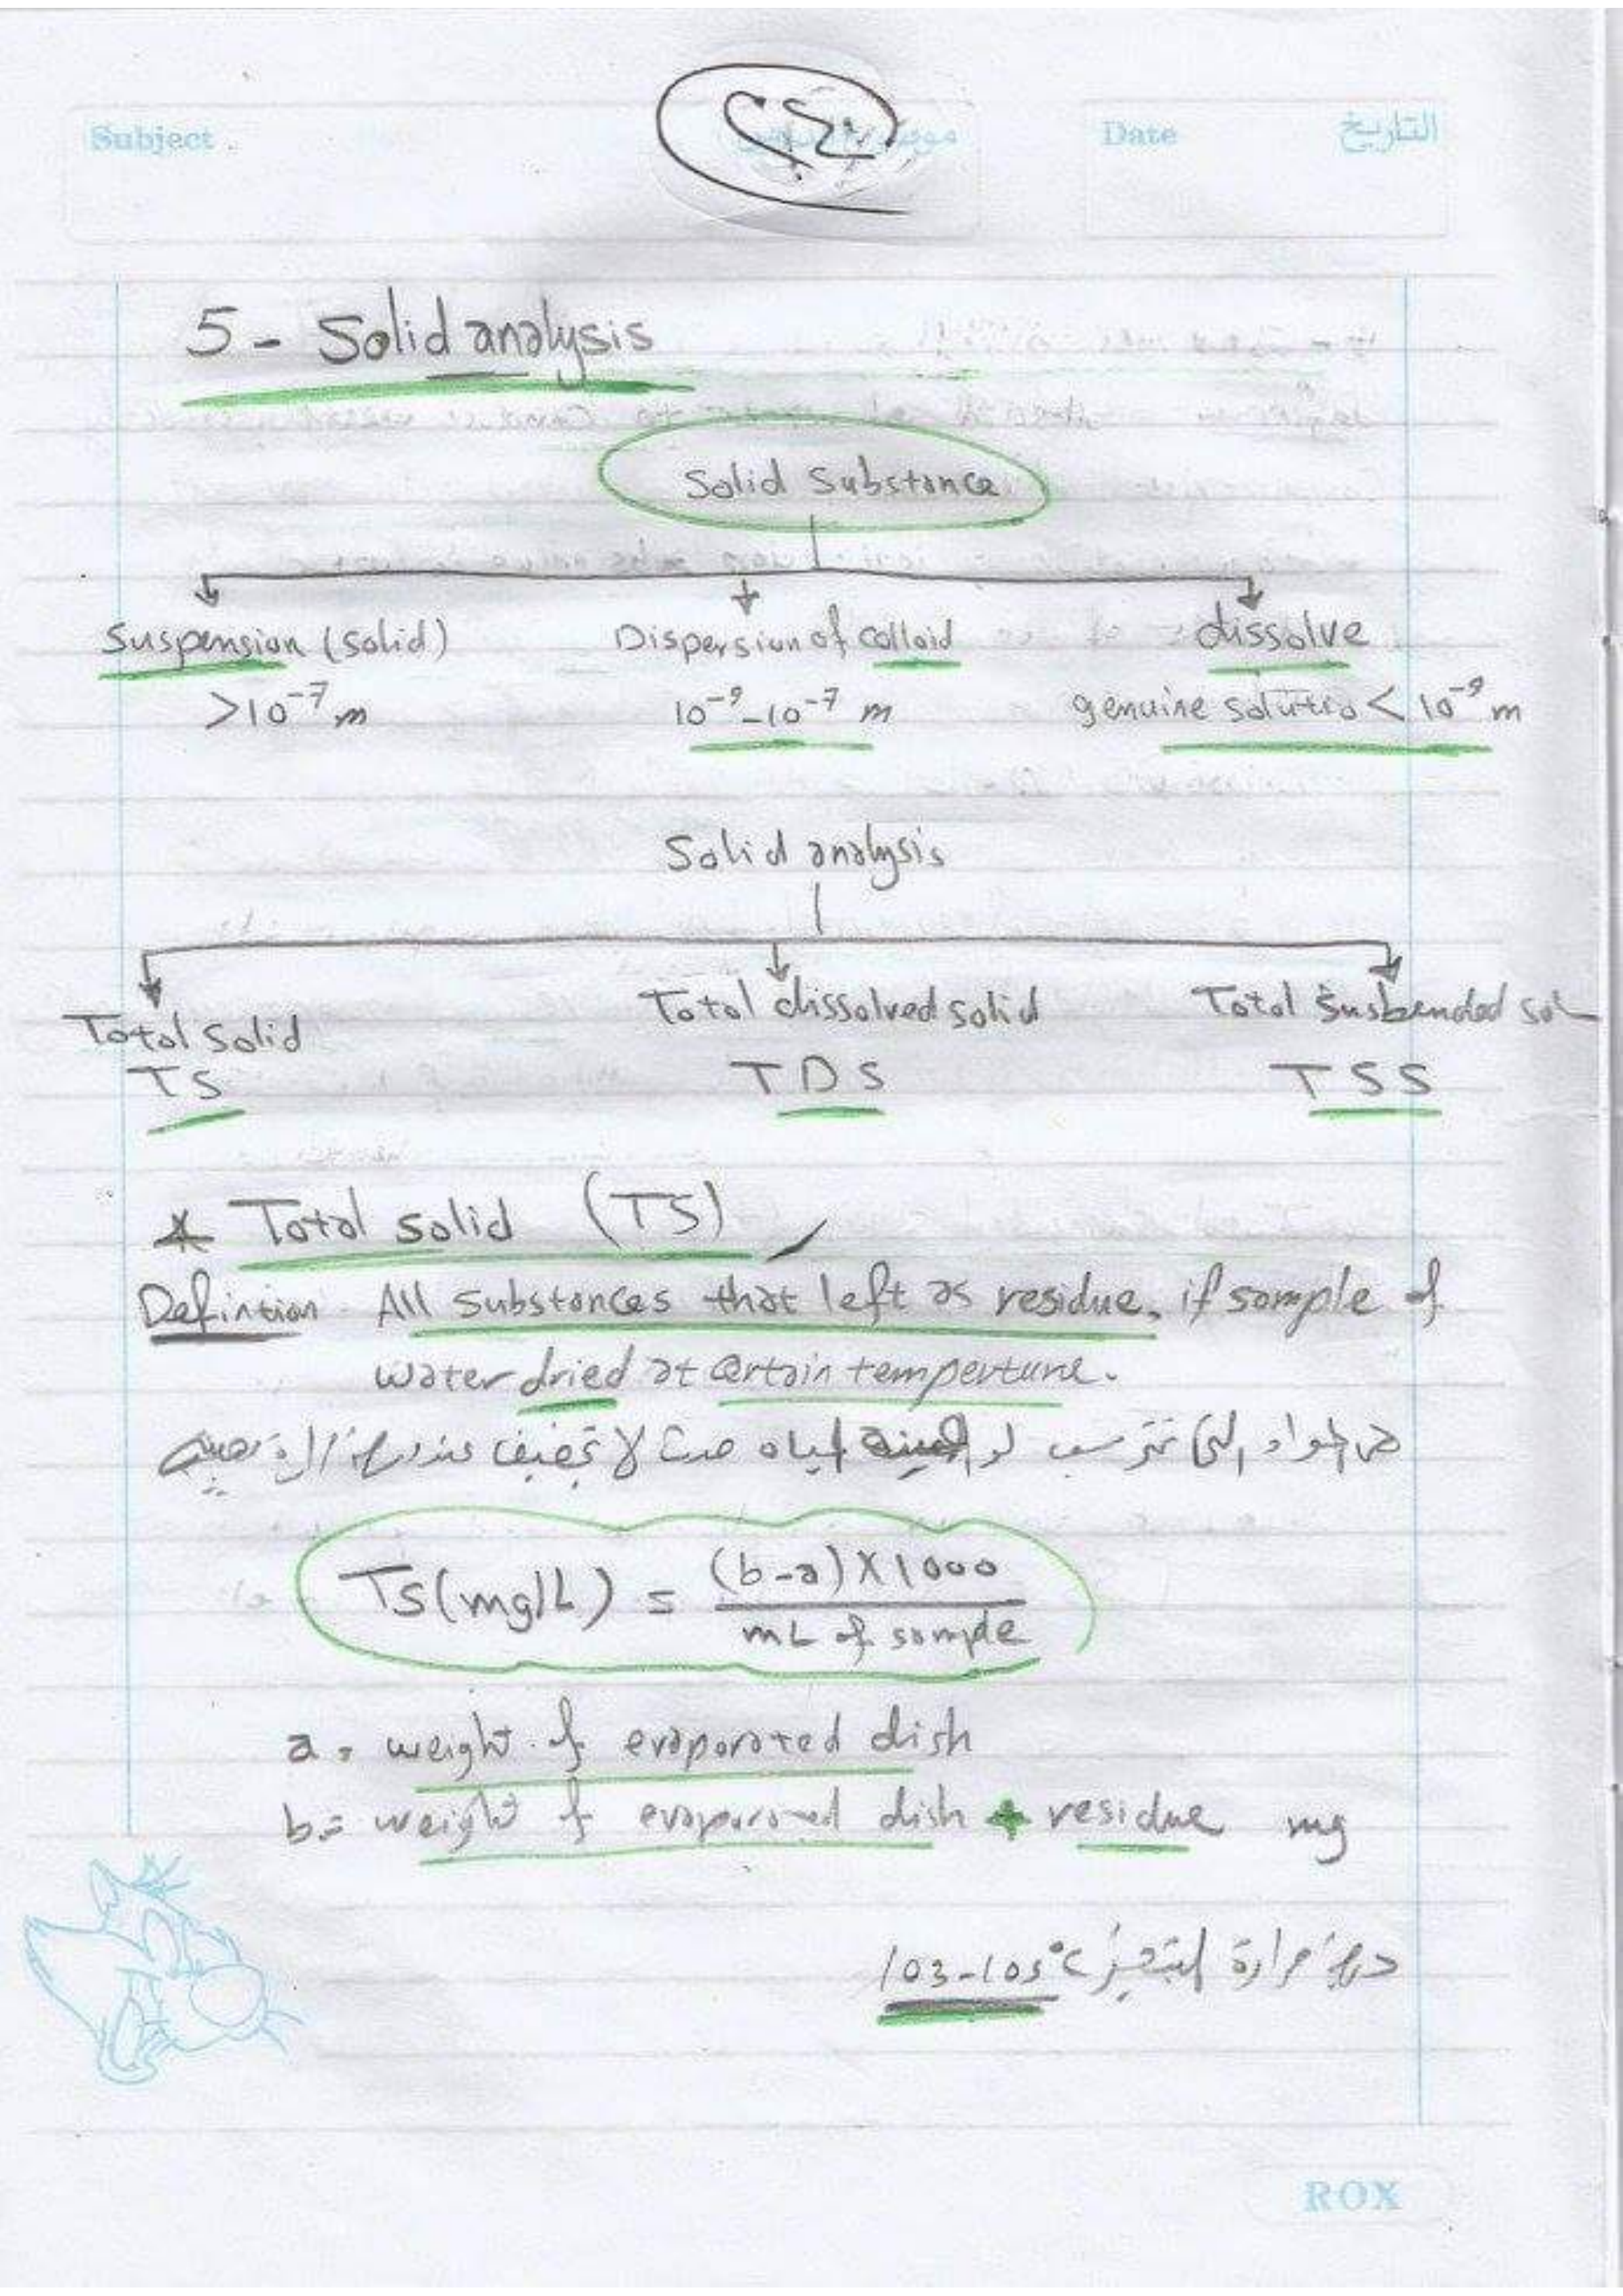 Subject
Date
التاريخ
5 - Solid analysis
Solid Substance
Suspension (solid)
Dispersion of colloid
dissolve
>10⁻⁷ m
10⁻⁹-10⁻⁷ m
genuine solutio < 10⁻⁹ m
Solid analysis
Total Solid
Total dissolved solid
Total Susbended sol
TS
TDS
TSS
* Total solid (TS)
Defintion All substances that left as residue, if sample of
water dried at certain temperture.
هى المواد التى تترسب لو المياه حدث لا تجفيف عند درجة حرارة معينه
TS(mg/L) = (b-a)X1000
mL of sample
a = weight of evaporated dish
b = weight of evaporated dish + residue mg
درجة حرارة التبخير 103-105°C
ROX